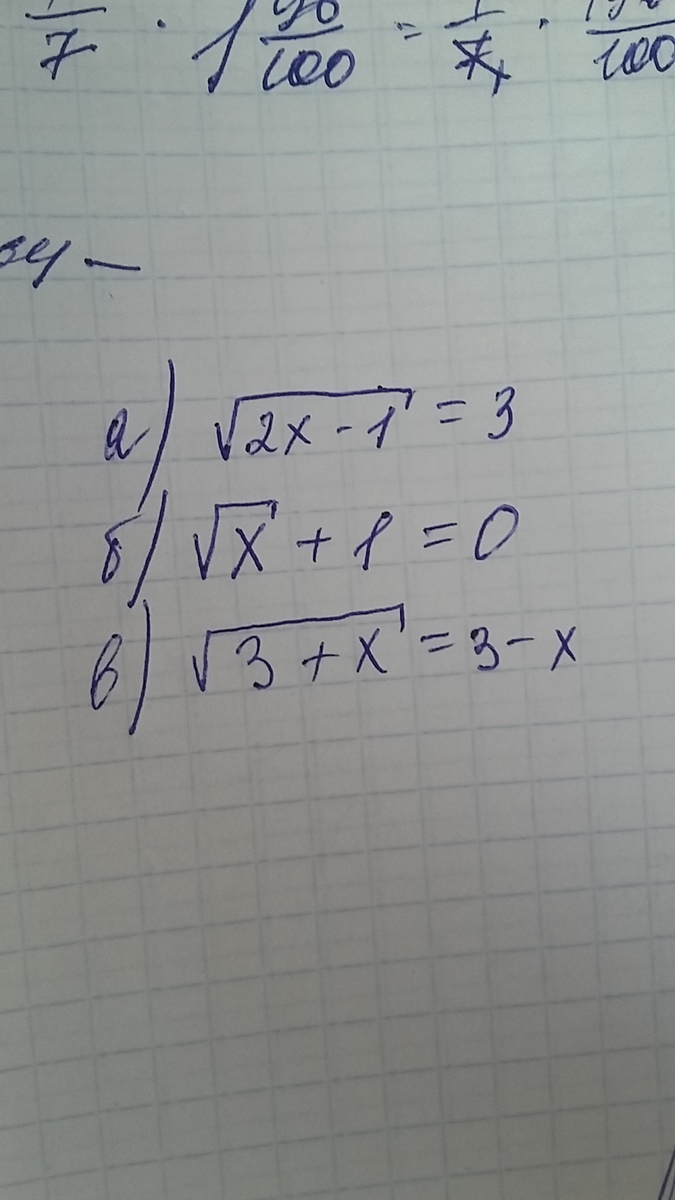 7 · 1 100 = 7 · 100
а) √2x - 1 = 3
б) √x + 1 = 0
в) √3 + x = 3 - x